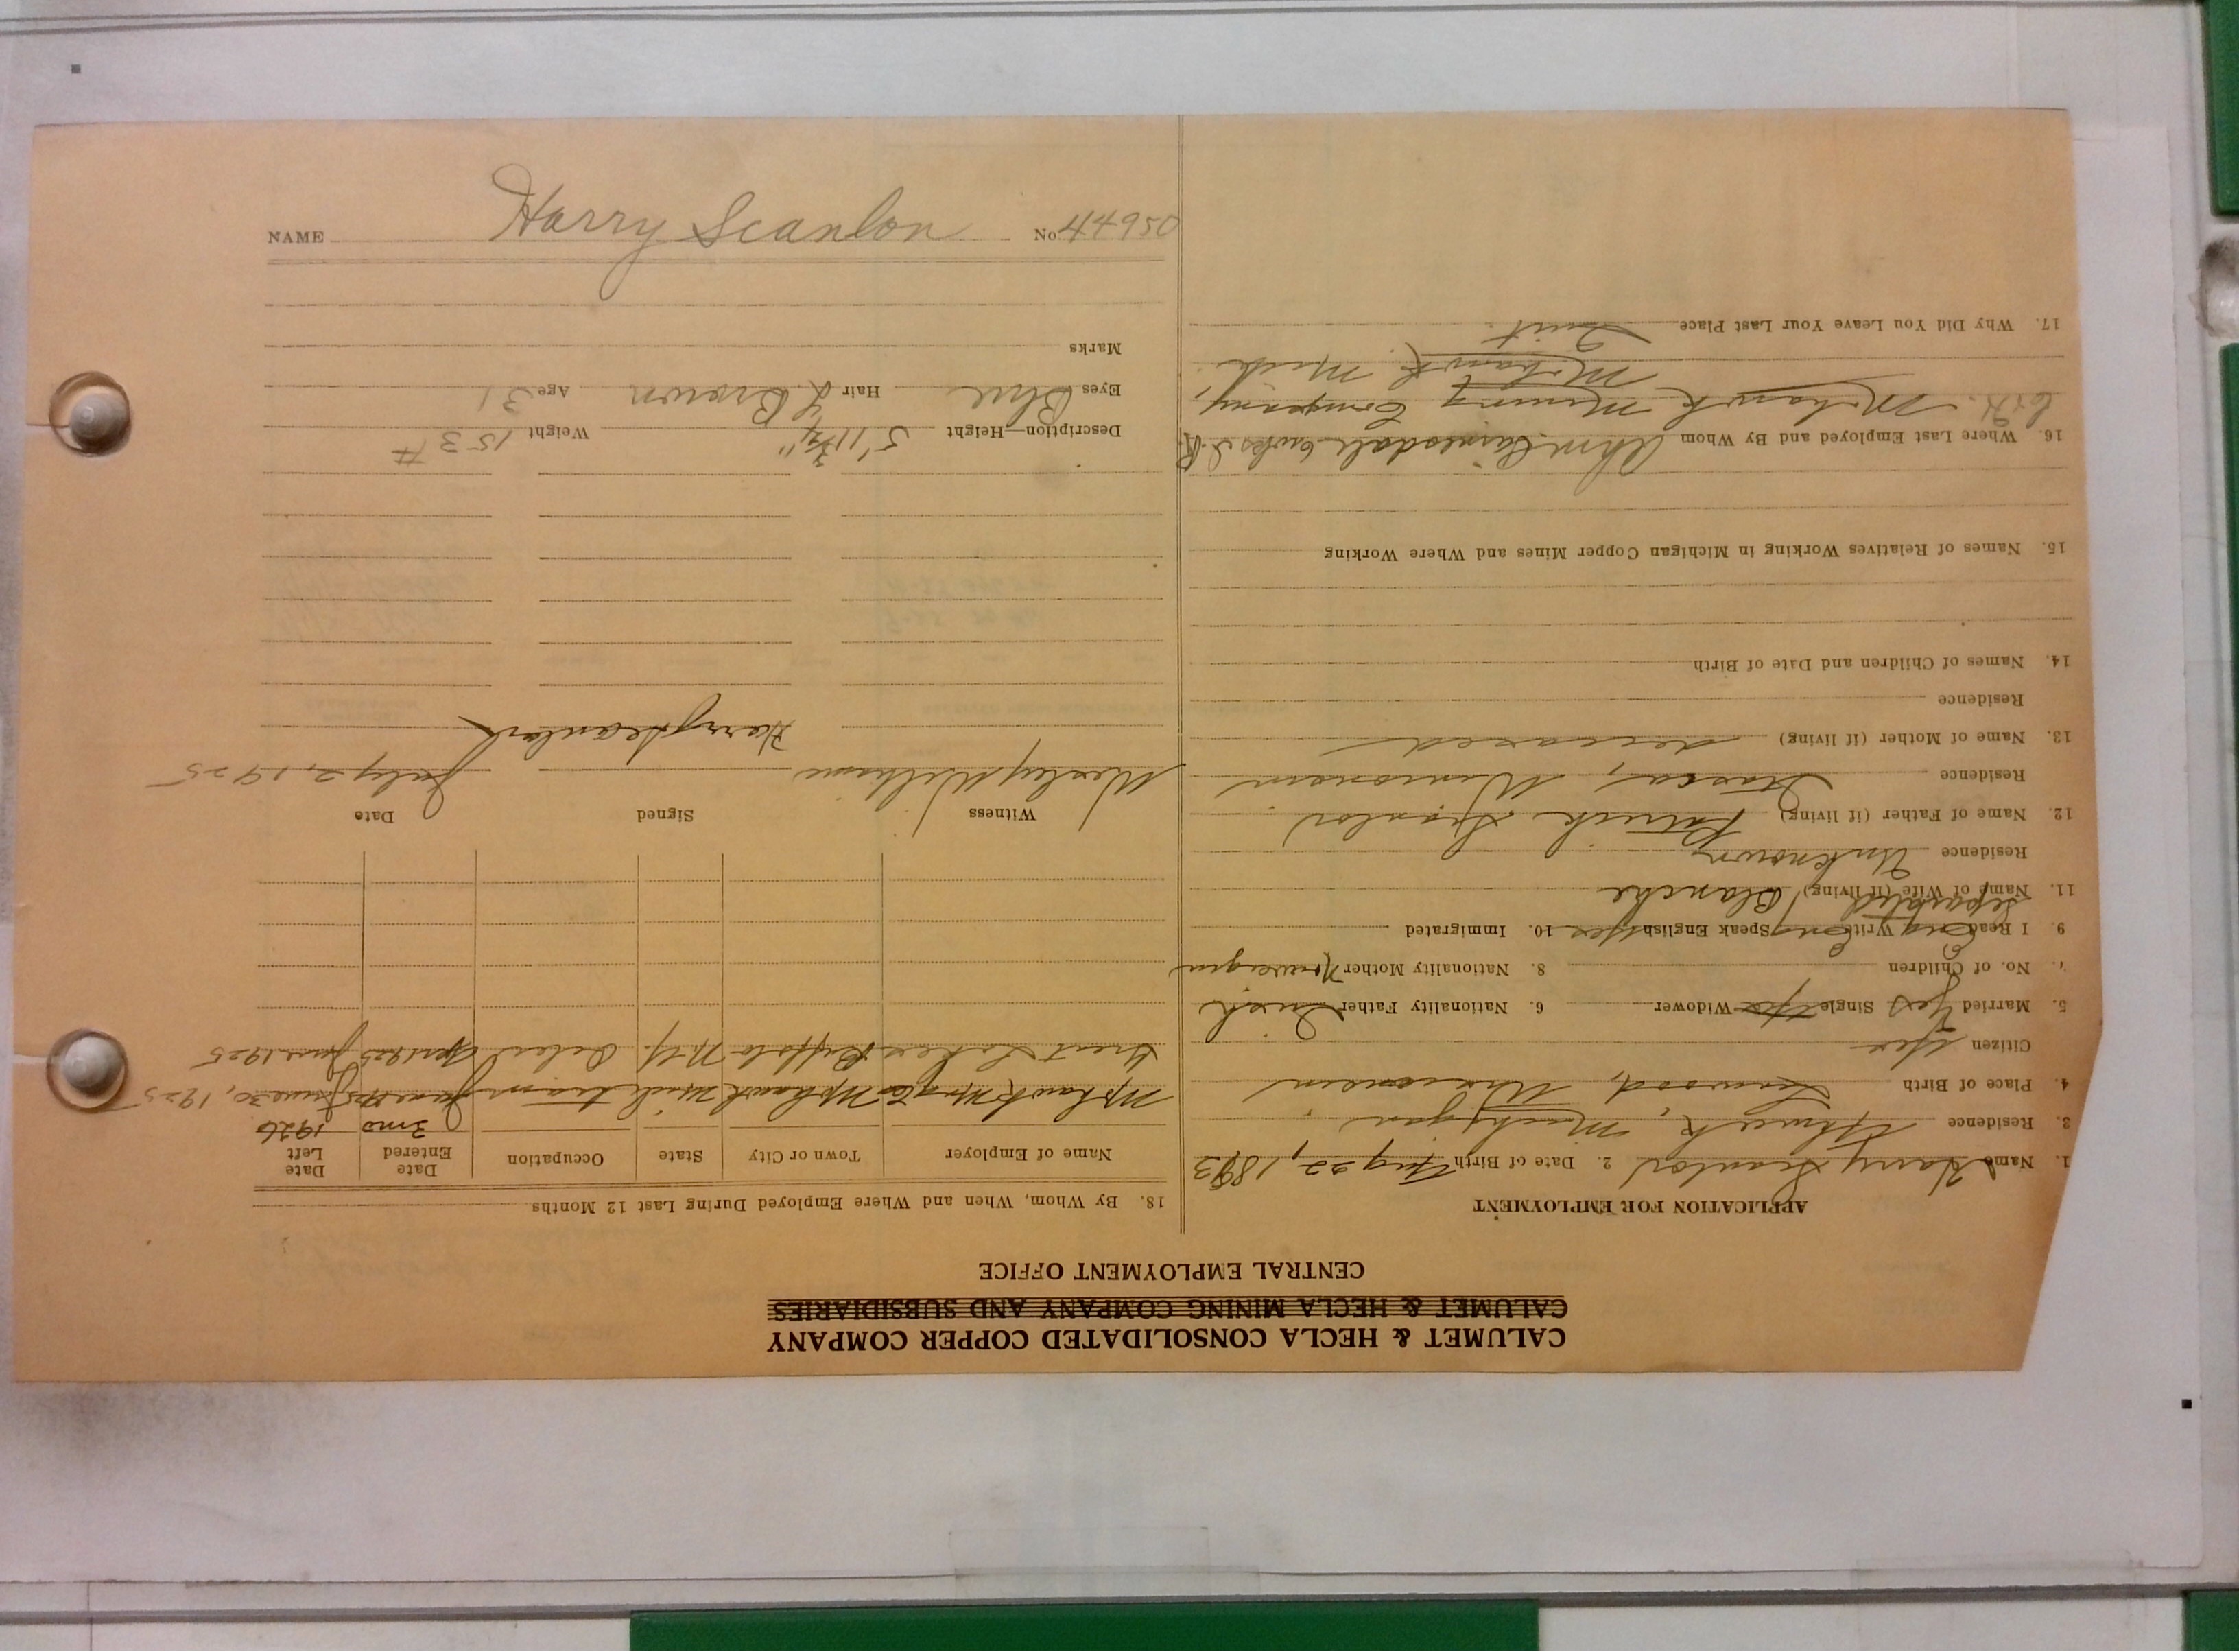 CALUMET & HECLA CONSOLIDATED COPPER COMPANY
CALUMET & HECLA MINING COMPANY AND SUBSIDIARIES
CENTRAL EMPLOYMENT OFFICE
APPLICATION FOR EMPLOYMENT
1. Name Harry Scanlon 2. Date of Birth Aug 22, 1893
3. Residence Ahmeek, Michigan
4. Place of Birth Wisconsin
Citizen Yes
5. Married Yes Single No Widower 6. Nationality Father Irish
7. No. of Children 8. Nationality Mother Norwegian
9. I Read Eng Write Eng Speak English Yes 10. Immigrated
Separated
11. Name of Wife (if living) Blanche
Residence Unknown
12. Name of Father (if living) Patrick Scanlon
Residence Wisconsin
13. Name of Mother (if living) deceased
Residence
14. Names of Children and Date of Birth
15. Names of Relatives Working in Michigan Copper Mines and Where Working
16. Where Last Employed and By Whom
Mohawk Mining Company,
Mohawk, Mich.
17. Why Did You Leave Your Last Place Quit.
18. By Whom, When and Where Employed During Last 12 Months
Name of Employer Town or City State Occupation Date Entered Date Left
3 mo 1926
Mohawk Mng Co Mohawk Mich tram June 1925 June 30, 1925
Great Lakes Buffalo N.Y. Apr 1925 June 1925
Witness Signed Date
Wesley Williams Harry Scanlon July 2, 1925
Description—Height 5' 11 3/4" Weight 153 #
Eyes Blue Hair L Brown Age 31
Marks
NAME Harry Scanlon No 44950